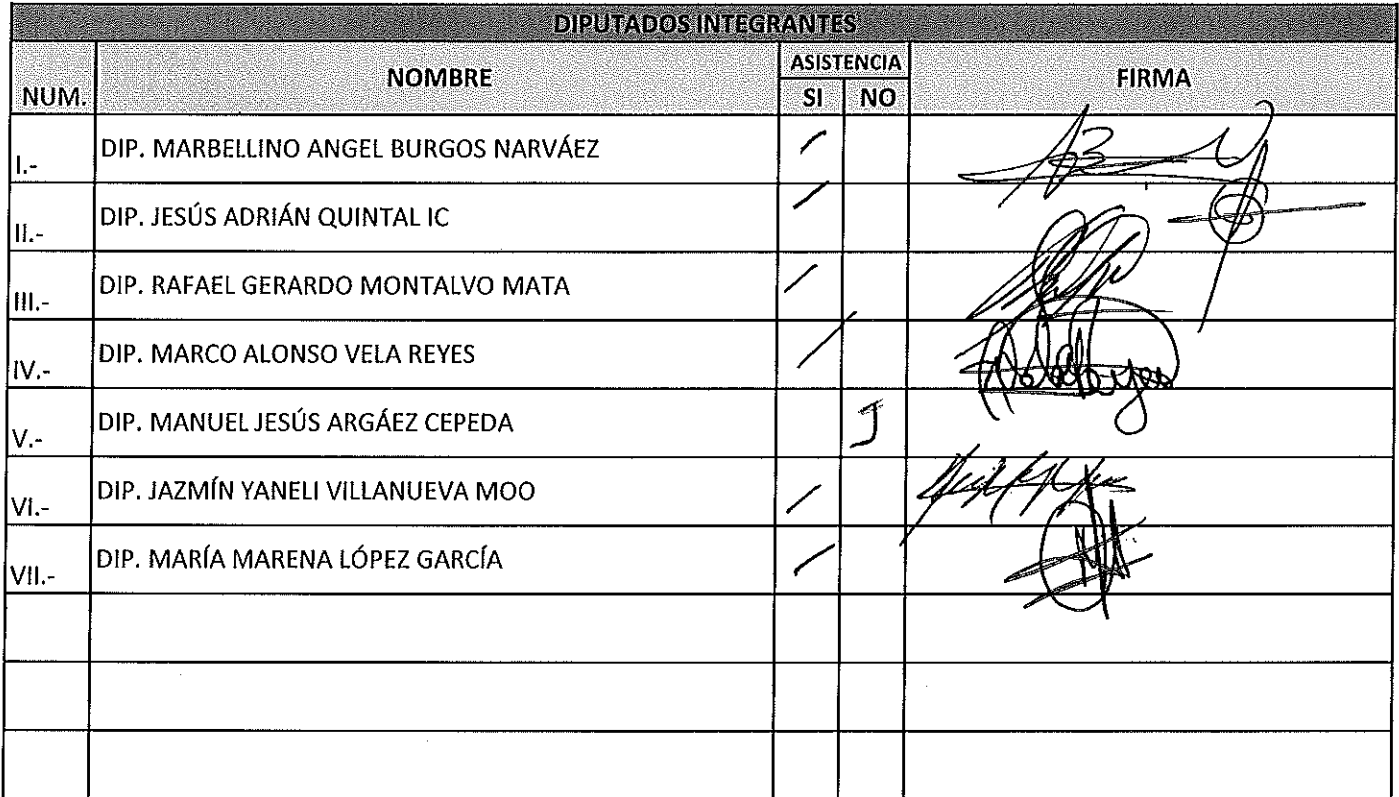 DIPUTADOS INTEGRANTES
NUM. NOMBRE ASISTENCIA SI NO FIRMA
I.- DIP. MARBELLINO ANGEL BURGOS NARVÁEZ /
II.- DIP. JESÚS ADRIÁN QUINTAL IC /
III.- DIP. RAFAEL GERARDO MONTALVO MATA /
IV.- DIP. MARCO ALONSO VELA REYES /
V.- DIP. MANUEL JESÚS ARGÁEZ CEPEDA J
VI.- DIP. JAZMÍN YANELI VILLANUEVA MOO /
VII.- DIP. MARÍA MARENA LÓPEZ GARCÍA /